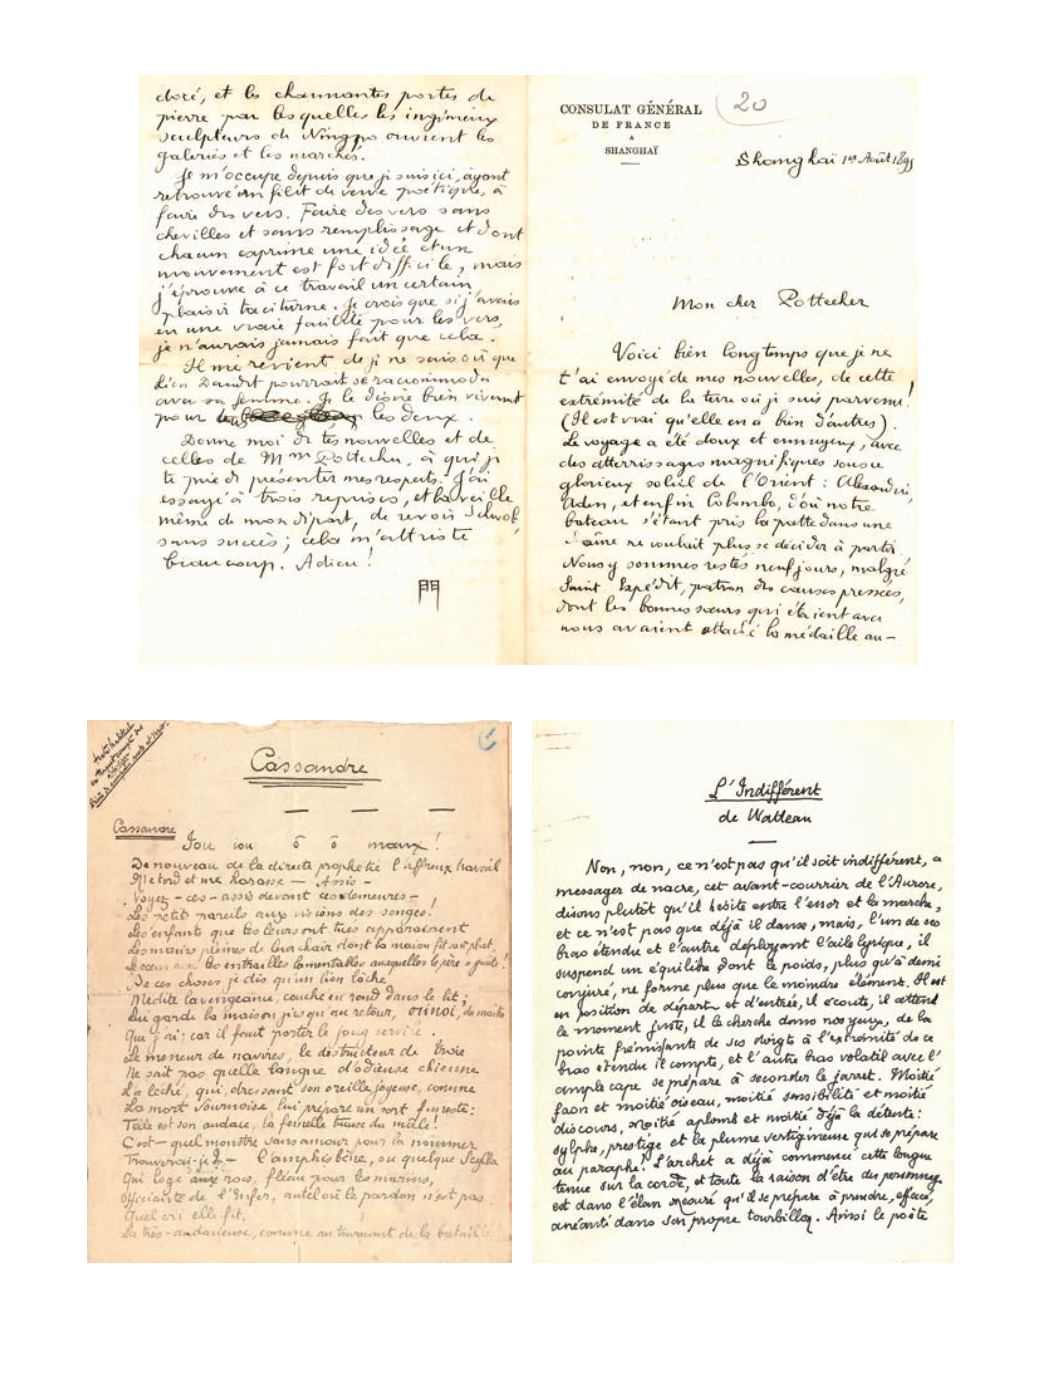 doré, et les charmantes portes de
pierre par lesquelles les ingénieux
sculpteurs de Ningpo ouvrent les
galeries et les marchés.
Je m'occupe depuis que je suis ici, ayant
retrouvé un filet de verve poétique, à
faire des vers. Faire des vers sans
chevilles et sans remplissage et dont
chacun exprime une idée et un
mouvement est fort difficile, mais
j'éprouve à ce travail un certain
plaisir taciturne. Je crois que si j'avais
eu une vraie facilité pour les vers,
je n'aurais jamais fait que cela.
Il me revient de je ne sais où que
Léon Daudet pourrait se raccommoder
avec sa femme. Je le désire bien vivement
pour les deux.
Donne moi de tes nouvelles et de
celles de Mme Pottecher, à qui je
te prie de présenter mes respects. J'ai
essayé à trois reprises, et la veille
même de mon départ, de revoir Schwob,
sans succès ; cela m'attriste
beaucoup. Adieu !
門
CONSULAT GÉNÉRAL
DE FRANCE
A
SHANGHAÏ
20
Shanghaï 1er Août 1895
Mon cher Pottecher
Voici bien longtemps que je ne
t'ai envoyé de mes nouvelles, de cette
extrémité de la terre où je suis parvenu !
(Il est vrai qu'elle en a bien d'autres).
Le voyage a été doux et ennuyeux, avec
des atterrissages magnifiques sous ce
glorieux soleil de l'Orient : Alexandrie,
Aden, et enfin Colombo, d'où notre
bateau s'étant pris la patte dans une
chaîne ne voulait plus se décider à partir.
Nous y sommes restés neuf jours, malgré
Saint Expédit, patron des causes pressées,
dont les bonnes soeurs qui étaient avec
nous avaient attaché la médaille au-
Cassandre
Cassandre
Iou iou ô ô maux !
De nouveau de la directe prophétie l'affreux travail
Me tord et me harasse —
Voyez - ces - assis devant ces demeures -
Les petits pareils aux visions des songes !
Les enfants que les leurs ont tués apparaissent
Les mains pleines de leur chair dont la maison fit son plat,
les entrailles lamentables auxquelles le père a goûté !
De ces choses je dis qu'un lion lâche
Médite la vengeance, couché en rond dans le lit ;
Qui garde la maison jusqu'au retour, du maître
Que j'ai ; car il faut porter le joug servile.
Le meneur de navires, le destructeur de Troie
Ne sait pas quelle langue d'odieuse chienne
L'a léché, qui, dressant son oreille joyeuse, comme
La mort sournoise lui prépare un sort funeste :
Telle est son audace, la femelle tueuse du mâle !
C'est — quel monstre sans amour pour la nommer
Trouverai-je ? — l'amphisbène, ou quelque Scylla
Qui loge aux rocs, fléau pour les marins,
Officiante de l'Enfer, autel où le pardon n'est pas.
Quel cri elle fit,
La très-audacieuse, comme au tournant de la bataille
L'Indifférent
de Watteau
Non, non, ce n'est pas qu'il soit indifférent, ce
messager de nacre, cet avant-courrier de l'Aurore,
disons plutôt qu'il hésite entre l'essor et la marche,
et ce n'est pas que déjà il danse, mais, l'un de ses
bras étendu et l'autre déployant l'aile lyrique, il
suspend un équilibre dont le poids, plus qu'à demi
conjuré, ne forme plus que le moindre élément. Il est
en position de départ et d'entrée, il écoute, il attend
le moment juste, il le cherche dans nos yeux, de la
pointe frémissante de ses doigts à l'extrémité de ce
bras étendu il compte, et l'autre bras volatil avec l'
ample cape se prépare à seconder le jarret. Moitié
faon et moitié oiseau, moitié sensibilité et moitié
discours, moitié aplomb et moitié déjà la détente :
sylphe, prestige et la plume vertigineuse qui se prépare
au paraphe ! L'archet a déjà commencé cette longue
tenue sur la corde, et toute la raison d'être du personnage
est dans l'élan mesuré qu'il se prépare à prendre, effacé,
anéanti dans son propre tourbillon. Ainsi le poète